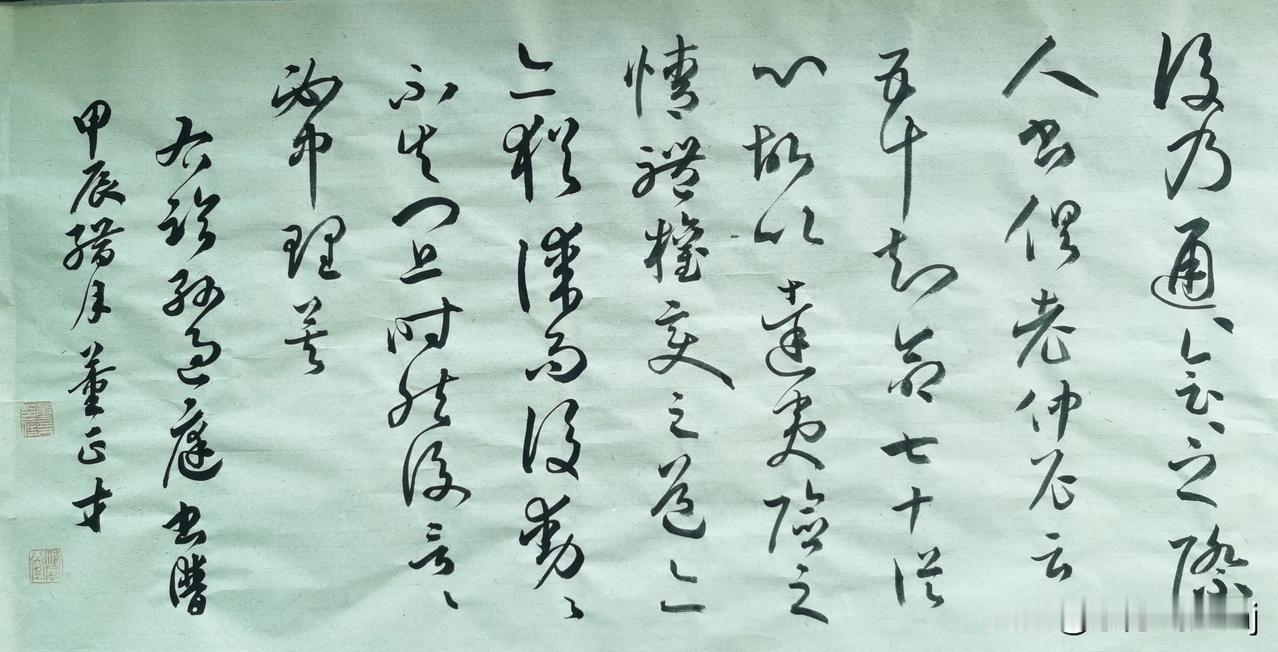 後乃通〻會〻之際
人書俱老仲尼云
五十知命七十從
心故以達夷險之
情體權變之道亦
亦猶謀而後動〻
不失宜時然後言〻
必中理矣
右臨孫過庭書譜
甲辰腊月董正才